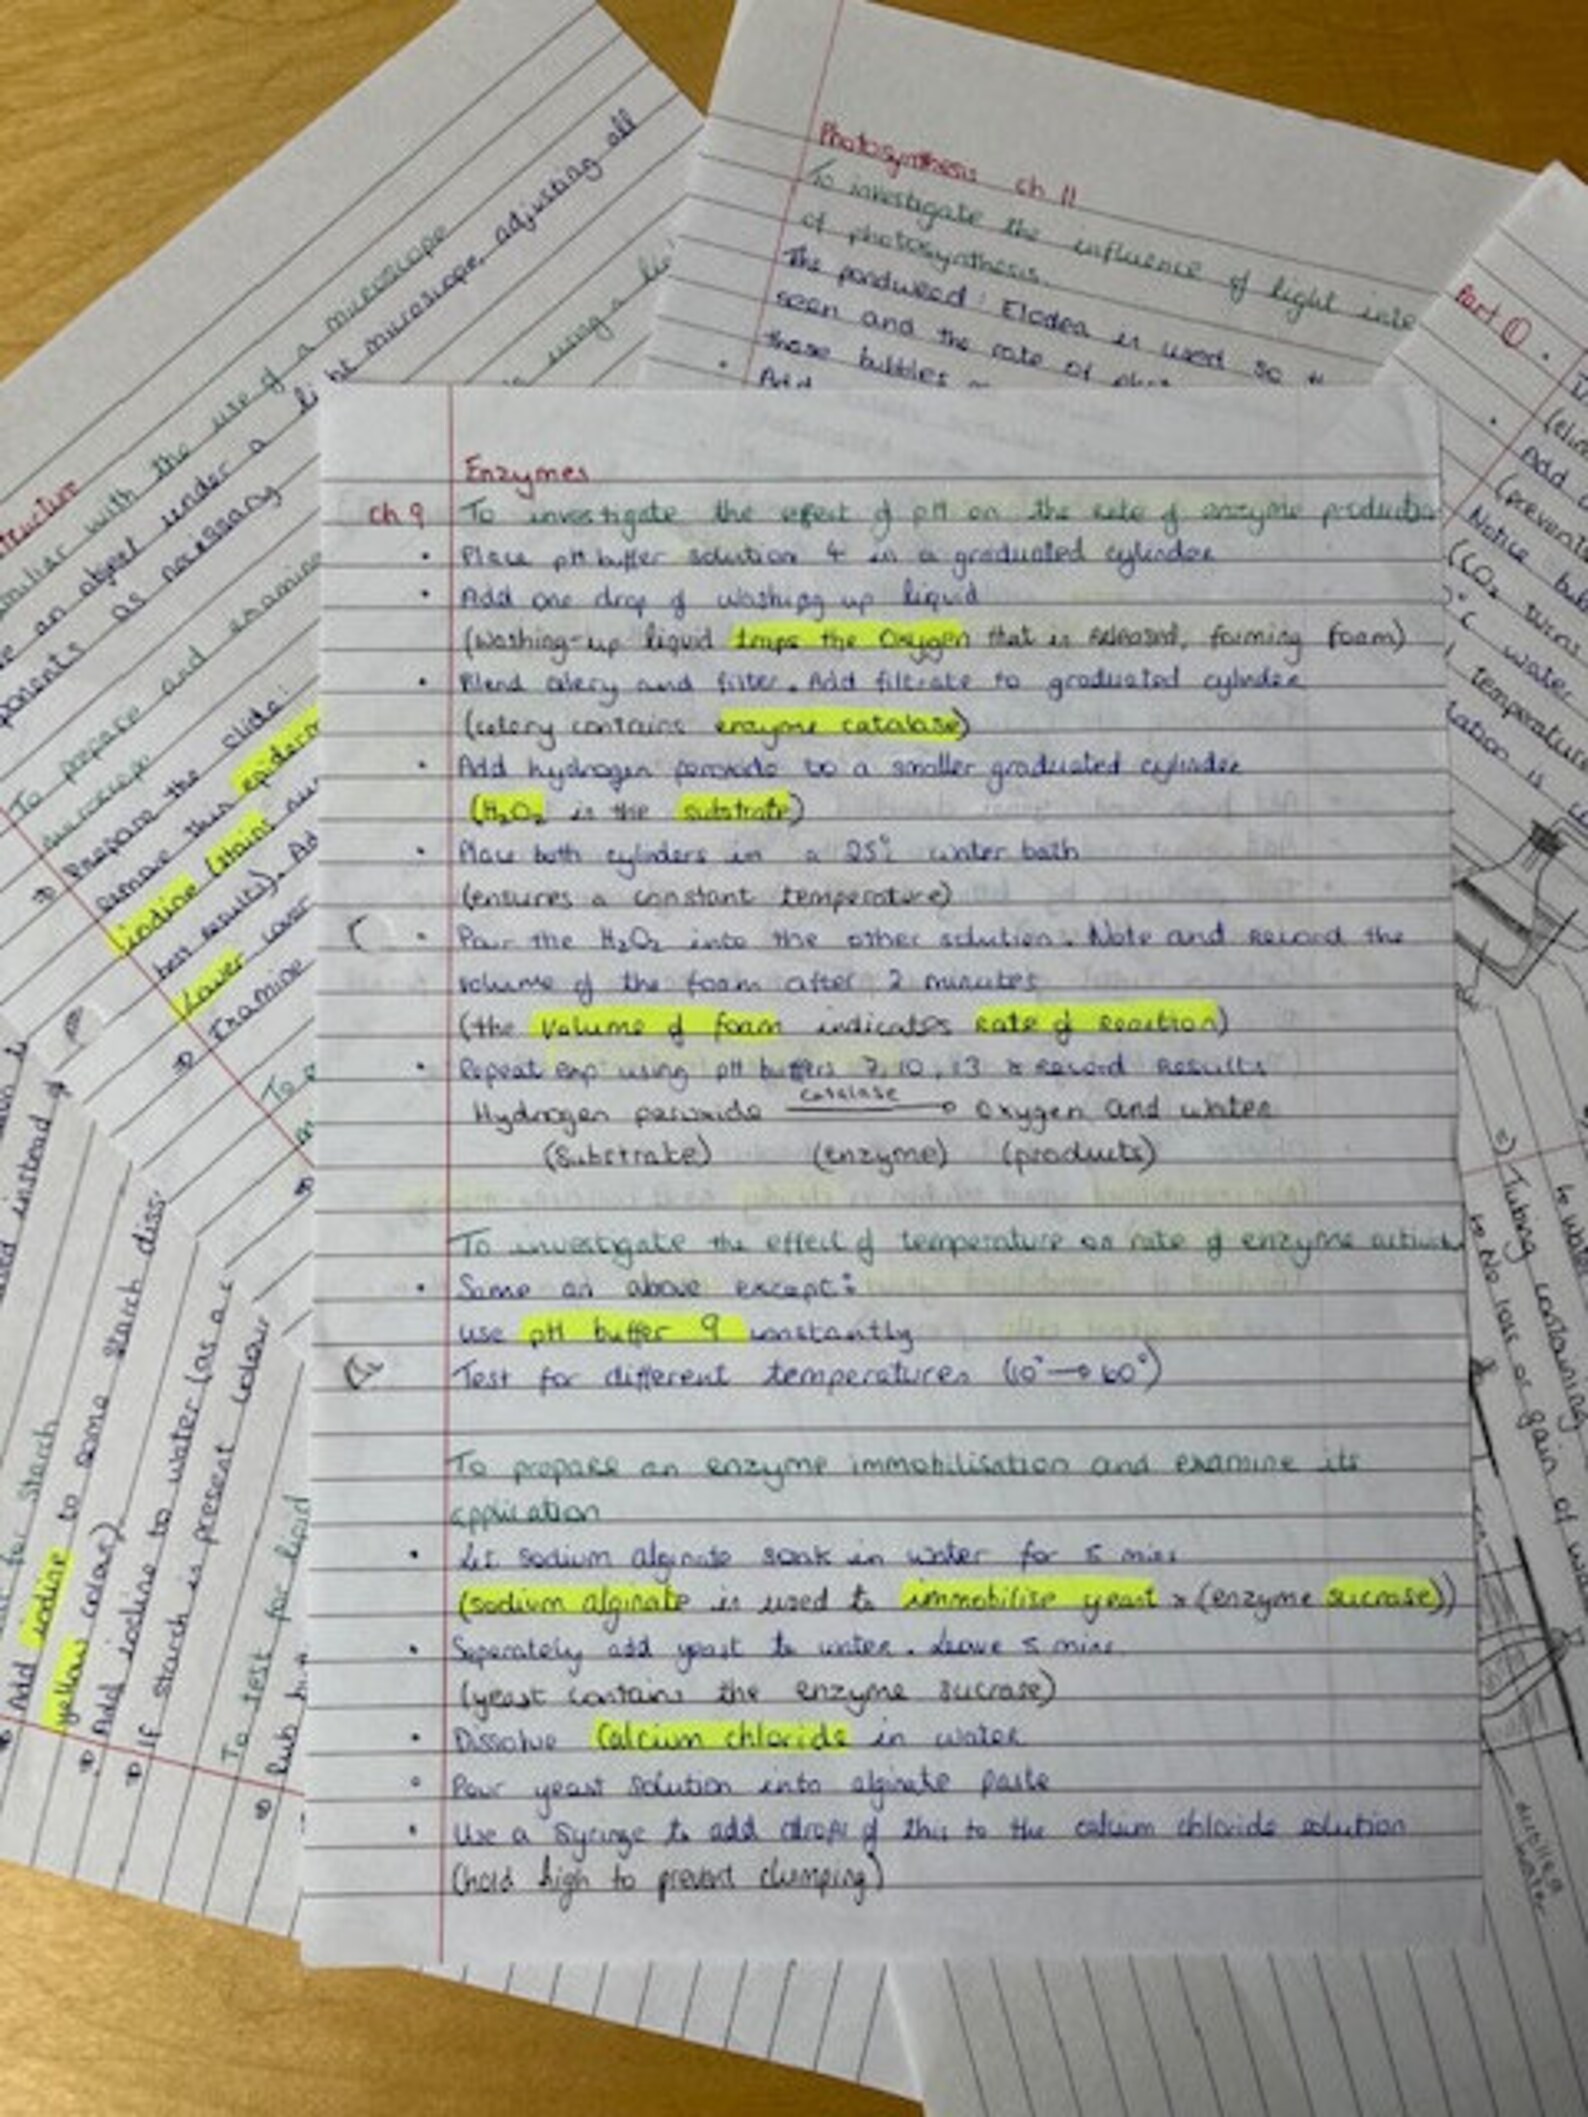 Enzymes
Ch 9 To investigate the effect of pH on the rate of enzyme production
• Place pH buffer solution 4 in a graduated cylinder
• Add one drop of washing up liquid
(Washing-up liquid traps the Oxygen that is released, forming foam)
• Blend celery and filter. Add filtrate to graduated cylinder
(celery contains enzyme catalase)
• Add hydrogen peroxide to a smaller graduated cylinder
(H₂O₂ is the substrate)
• Place both cylinders in a 25°c water bath
(ensures a constant temperature)
• Pour the H₂O₂ into the other solution. Note and record the
volume of the foam after 2 minutes
(the volume of foam indicates rate of reaction)
• Repeat exp using pH buffers 7, 10, 13 & record results
catalase
Hydrogen peroxide → Oxygen and water
(Substrate) (Enzyme) (products)
To investigate the effect of temperature on rate of enzyme
• Same as above except:
use pH buffer 9 constantly
Test for different temperatures (10° → 60°)
To prepare an enzyme immobilisation and examine its
application
• Let sodium alginate soak in water for 5 mins
(sodium alginate is used to immobilise yeast & (enzyme sucrase))
• Seperately add yeast to water. Leave 5 mins
(yeast contains the enzyme sucrase)
• Dissolve Calcium chloride in water
• Pour yeast solution into alginate paste
• Use a Syringe to add drops of this to the calcium chloride solution
(hold high to prevent clumping)
Photosynthesis ch 11
To investigate the influence of light
of photosynthesis.
The pondweed: Elodea is used so
seen and the rate of
those bubbles
• Add
Part ①
Add
Notice
(CO₂ turns
°c water
temperature
is
with the use of a microscope
an object under a light microscope, adjusting all
as necessary
using a
To prepare and examine
microscope
Prepare the slide:
remove this
iodine (stains
best results). Ad
Lower cover
Examine
instead of
for Starch
Add iodine to some starch
yellow color)
Add iodine to water (as a c
If starch is present colour
To test for lipid
Rub
Tubing containing
No loss or gain of
distilled
water